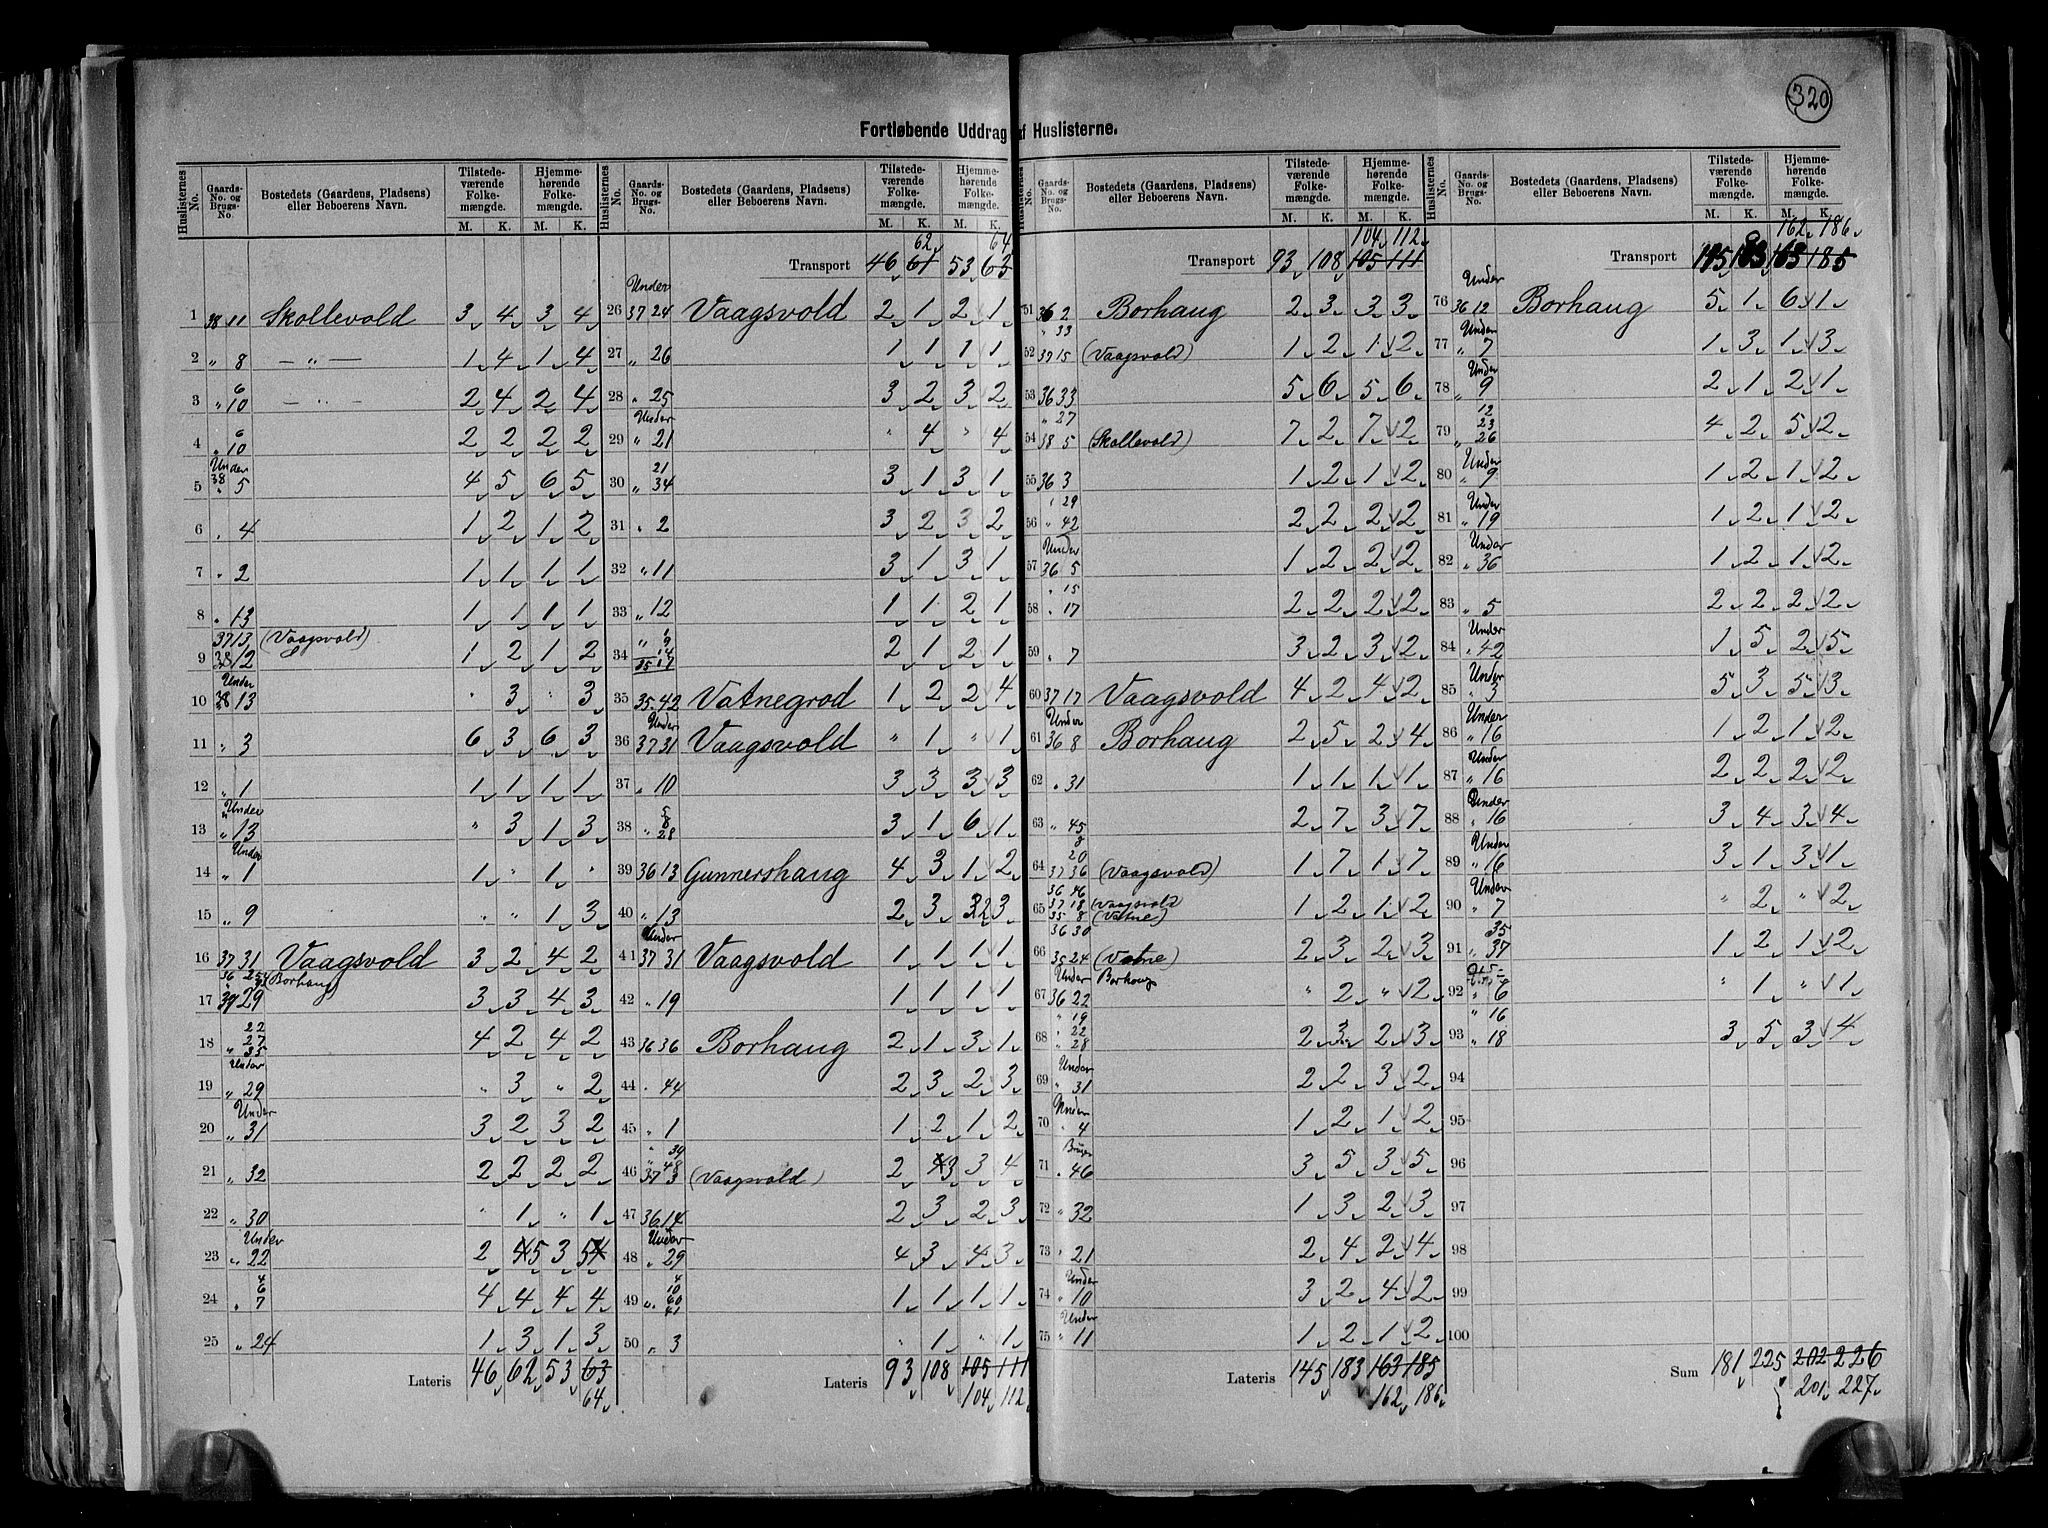 320
Fortløbende Uddrag af Huslisterne.
Huslisternes No. | Gaards-No. og Brugs-No. | Bostedets (Gaardens, Pladsens) eller Beboerens Navn. | Tilstedeværende Folkemængde. M. K. | Hjemmehørende Folkemængde. M. K.
1 38 11 Skollevold 3 4 3 4
2 " 8 — " — 1 4 1 4
3 " 6 10 — " — 2 4 2 4
4 " 6 10 2 2 2 2
5 Under 38 5 4 5 6 5
6 " 4 1 2 1 2
7 " 2 1 1 1 1
8 " 13 1 1 1 1
9 37 13 (Vaagsvold) 38 12 1 2 1 2
10 Under 38 13 " 3 " 3
11 " 3 6 3 6 3
12 " 1 1 1 1 1
13 Under " 13 " 3 1 3
14 Under " 1 1 " 1 "
15 " 9 " " 1 3
16 37 31 Vaagsvold 3 2 4 2
17 36 (Borhaug) 37 29 3 3 4 3
18 " 22 27 35 4 2 4 2
19 Under " 29 " 3 " 2
20 Under " 31 3 2 3 2
21 " 32 2 2 2 2
22 " 30 " 1 " 1
23 Under " 22 2 4 5 3 5 4
24 " 4 6 7 4 4 4 4
25 " 24 1 3 1 3
Lateris 46 62 53 63
64
Transport 46 61 53 63
62 64
26 Under 37 24 Vaagsvold 2 1 2 1
27 " 26 1 1 1 1
28 " 25 3 2 3 2
29 Under " 21 " 4 " 4
30 " 21 34 3 1 3 1
31 " 2 3 2 3 2
32 " 11 3 1 3 1
33 " 12 1 1 2 1
34 2 1 2 1
35 35 42 Vatnegrod 1 2 2 4
36 Under 37 31 Vaagsvold " 1 " 1
37 " 10 3 3 3 3
38 " 5 8 28 3 1 6 1
39 36 13 Gunnershaug 4 3 1 2
40 " 13 2 3 3 2 3
41 Under 37 31 Vaagsvold 1 1 1 1
42 " 19 1 1 1 1
43 36 36 Borhaug 2 1 3 1
44 " 44 2 3 2 3
45 " 1 1 2 1 2
46 " 39 " 48 37 3 (Vaagsvold) 2 4 3 3 4
47 36 14 2 3 2 3
48 Under " 29 4 3 4 3
49 " 4 10 60 41 1 1 1 1
50 " 3 " 1 " 1
Lateris 93 108 105 111
104 112
Transport 93 108 105 111
104 112
51 36 2 Borhaug 2 3 3 3
52 " 33 37 15 (Vaagsvold) 1 2 1 2
53 36 33 5 6 5 6
54 " 27 38 5 (Skollevold) 7 2 7 2
55 36 3 1 2 1 2
56 " 29 " 42 2 2 2 2
57 Under 36 5 1 2 2 2
58 " 15 " 17 2 2 2 2
59 " 7 3 2 3 2
60 37 17 Vaagsvold 4 2 4 2
61 Under 36 8 Borhaug 2 5 2 4
62 " 31 1 1 1 1
63 " 45 2 7 3 7
64 8 20 37 36 (Vaagsvold) 1 7 1 7
65 36 46 37 18 (Vaagsvold) 35 8 (Vatne) 1 2 1 2
66 36 30 35 24 (Vatne) 2 3 2 3
67 Under Borhaug 36 22 " 2 " 2
68 " 19 " 22 " 28 2 3 2 3
69 Under " 31 2 2 3 2
70 Under " 4 1 2 1 2
71 Bruger " 46 3 5 3 5
72 " 32 1 3 2 3
73 " 21 2 4 2 4
74 Under " 10 3 2 4 2
75 Under " 11 1 2 1 2
Lateris 145 183 163 185
162 186
Transport 145 183 163 185
162 186
76 Under 36 12 Borhaug 5 1 6 1
77 Under " 7 1 3 1 3
78 Under " 9 2 1 2 1
79 " 12 23 26 4 2 5 2
80 Under " 9 1 2 1 2
81 Under " 19 1 2 1 2
82 Under " 36 1 2 1 2
83 " 5 2 2 2 2
84 Under " 42 1 5 2 5
85 Under " 3 5 3 5 3
86 Under " 16 1 2 1 2
87 Under " 16 2 2 2 2
88 Under " 16 3 4 3 4
89 Under " 16 3 1 3 1
90 Under " 7 " 2 " 2
91 " 35 37 1 2 1 2
92 " 6 " 1 " 1
93 " 16 " 18 3 5 3 4
94
95
96
97
98
99
100
Sum 181 225 202 226
201 227